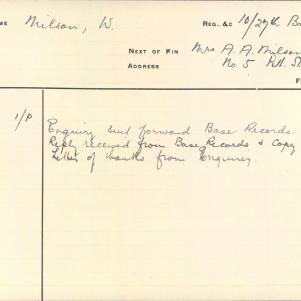 ME Milson, W. REG. &C 10/27th Ba
NEXT OF KIN Mrs A. A. Milson
ADDRESS No 5 Pitt St
F
1/P Enquiry sent forward Base Records.
Reply received from Base Records & Copy
Letter of thanks from Enquirer.